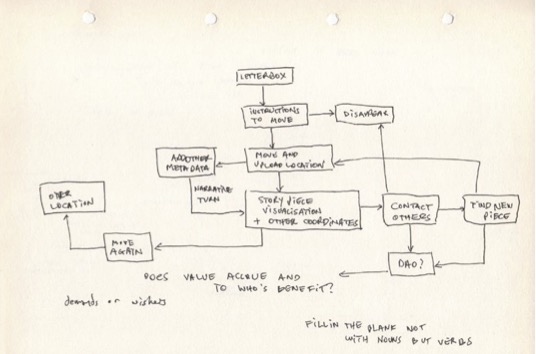 LETTERBOX
INSTRUCTIONS
TO MOVE
DISAPPEAR
ADD OTHER
METADATA
MOVE AND
UPLOAD LOCATION
NARRATIVE
TURN
STORY PIECE
VISUALISATION
+ OTHER COORDINATES
CONTACT
OTHERS
FIND NEW
PIECE
OTHER
LOCATION
MOVE
AGAIN
DAO?
DOES VALUE ACCRUE AND
TO WHO'S BENEFIT?
demands or wishes
FILL IN THE BLANK NOT
WITH NOUNS BUT VERBS